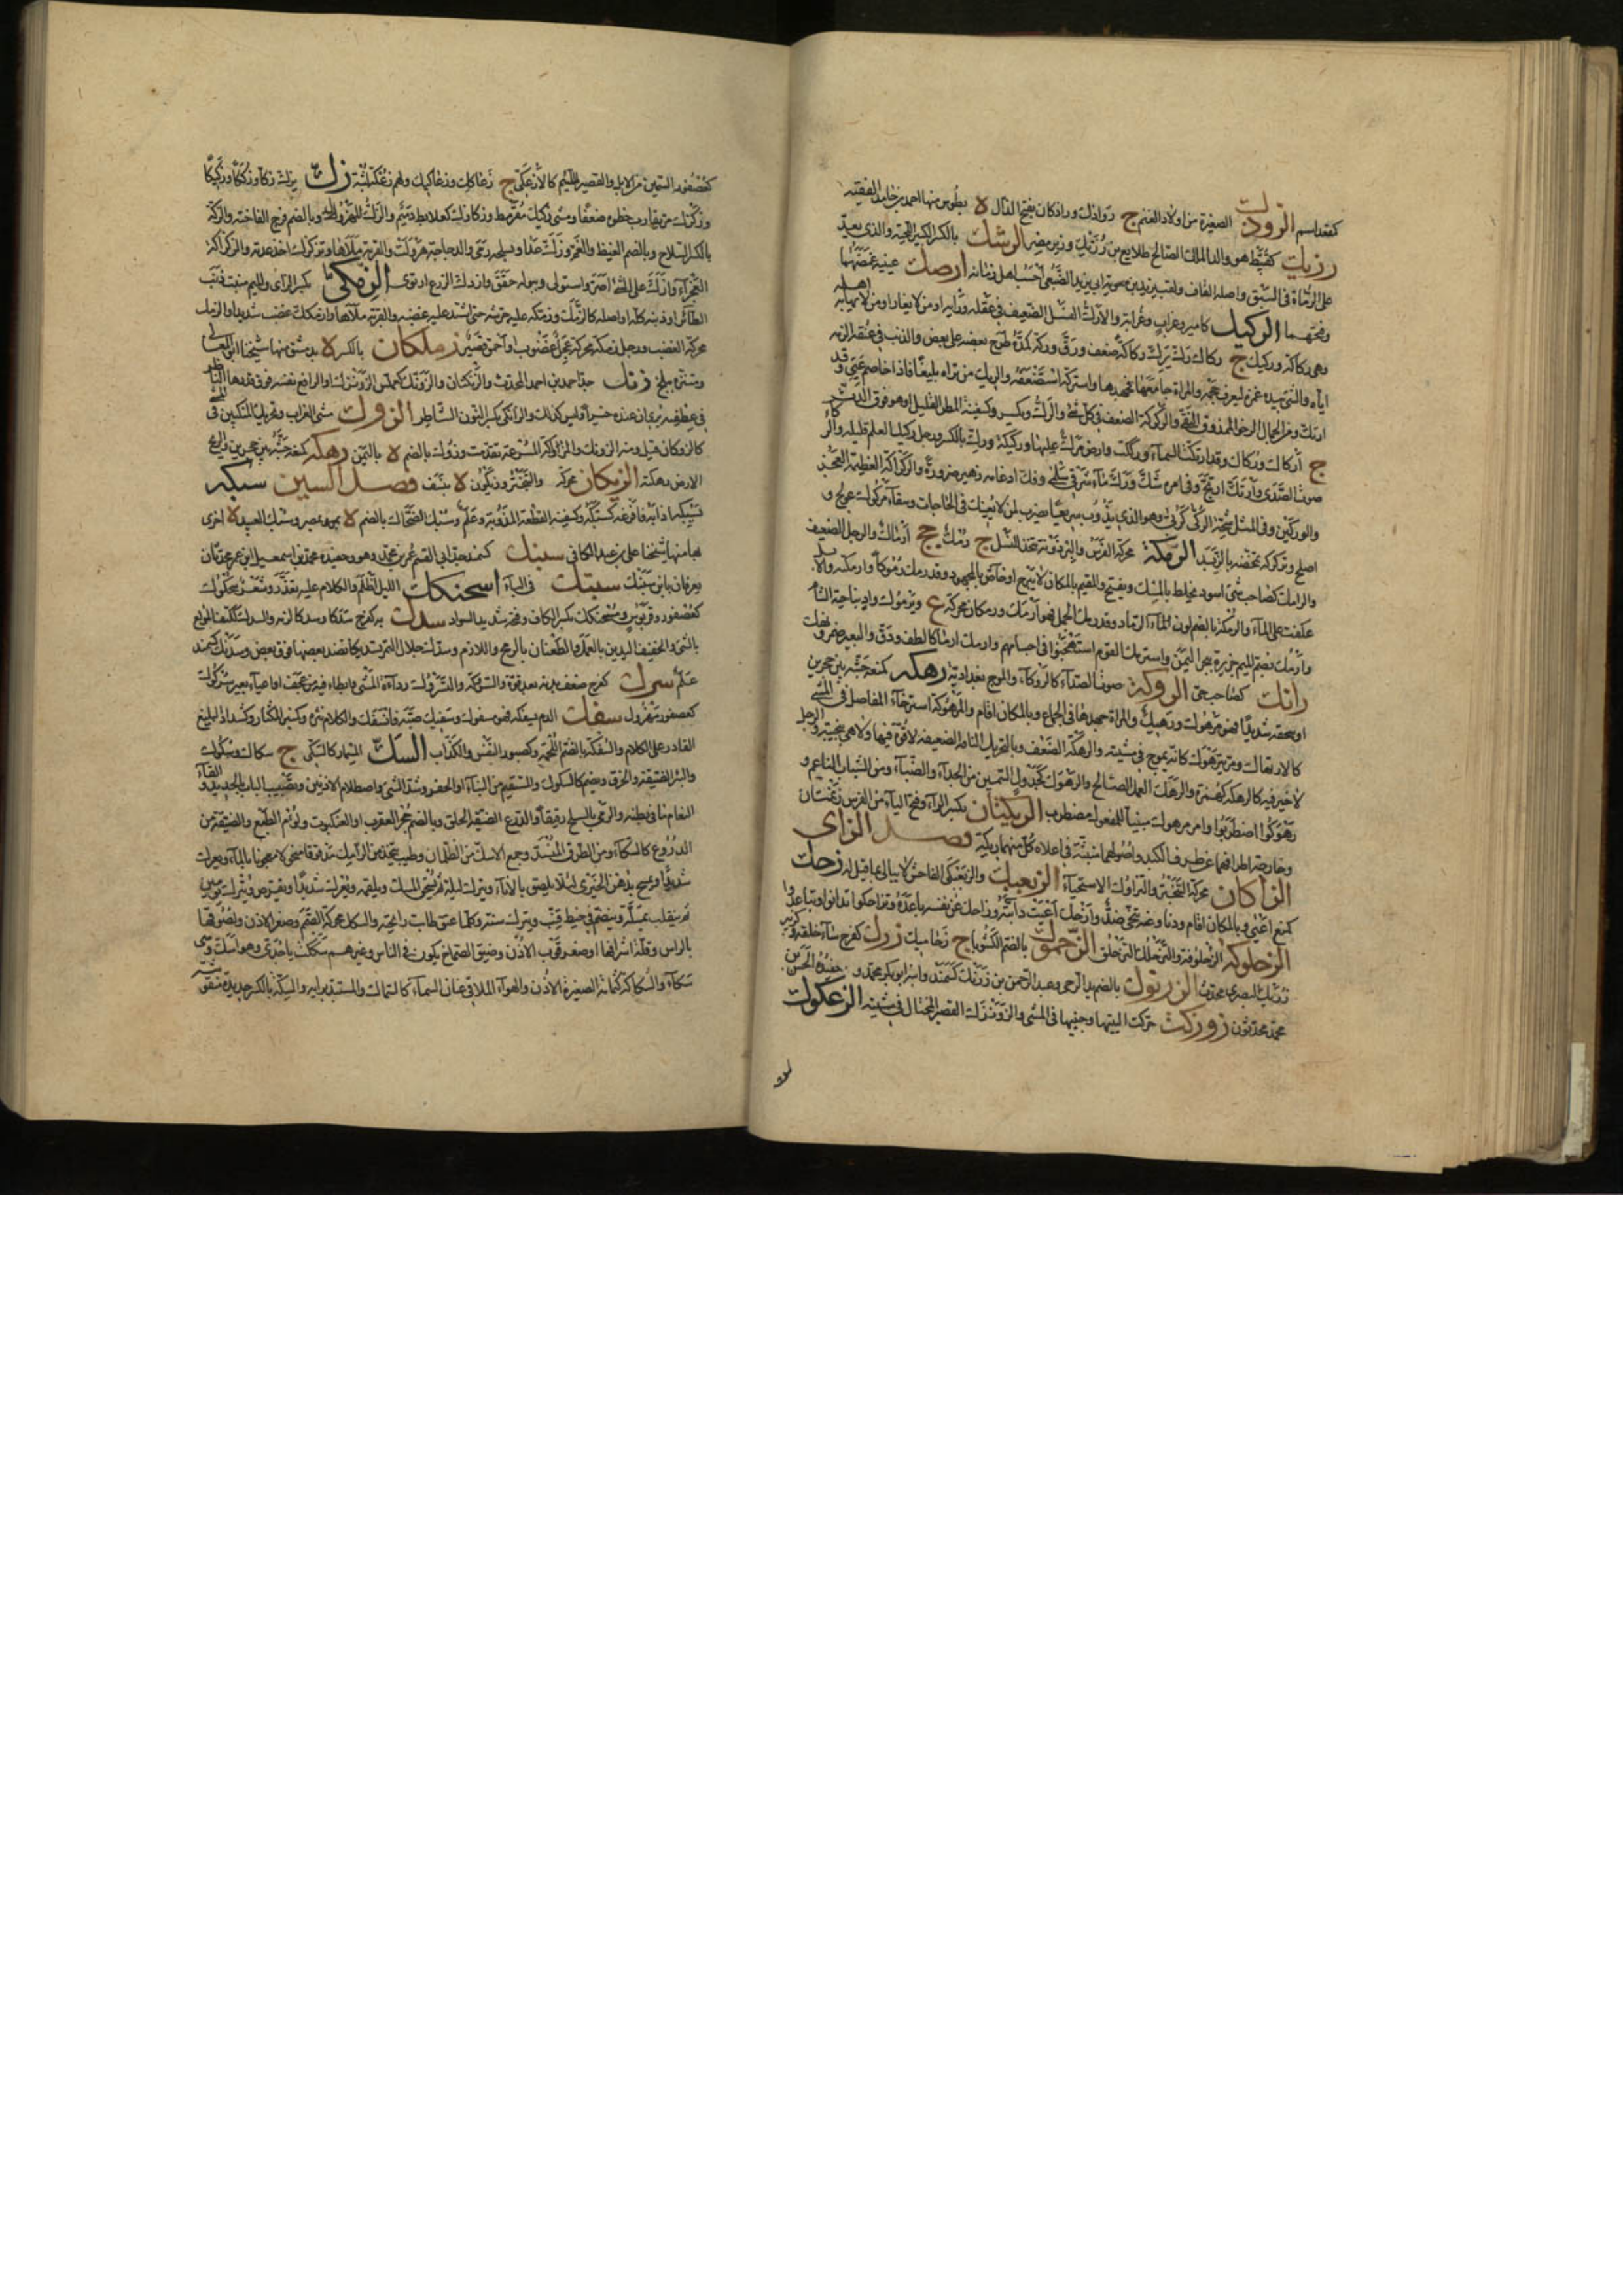 كقعد اسم الروذك الصغيرة من اولاد الغنم ج رواذك وراذكان بفتح الذال لا بطوس منها احمد بن حامد الفقيه
رزيك كقبيط هو والد الملك الصالح طلايع بن رزيك وزير مصر الرشك بالكسر الكبير اللحية والذى يعد
على الرماة فى السبق واصله القاف ولقب يزيد بن ابى يزيد الضبعى احسب اهل زمانه ارصك عينيه غمضهما
وفتحهما الركيك كامير وغراب وغرابة والارك الفسل الضعيف فى عقله ورأيه او من لا يغار او من لا يهابه اهله
وهى ركاكة وركيك ج ركاك رك يرك ركاكة ضعف ورق وركه كمده طرح بعضه على بعض والذنب فى عنقه الزمه
اياه والشئ بيده غمزه ليعرف حجمه والمراة جامعها فجهدها واستركه استضعفه والمرتك من تراه بليغا فاذا خاصم عيى وقد
ارتك ومن الجمال الرخو الممذوق النقى والركركة الضعف فى كل شئ والرك ويكسر وكسفينة المطر القليل او هو فوق الدث
ج اركاك وركاك وقد اركت السمآء ورككت وارض مرك عليها وركيكة ورك بالكسر ورجل ركيك العلم قليله
صوت الصدى وارتك ارتج وفى امره شك ورك مآء شرقى سلمى وفك ادغامه زهير ضرورة والركراكة العظيمة العجز
والوركين وفى المثل شحمة الركى كربى وهو الذى يذوب سريعا يضرب لمن لا يعينك فى الحاجات وسقآء مركوك عولج و
اصلح وتركركه تمخضه بالزبد الرمكة محركة الفرس والبرذونة تتخذ للنسل ج رمك جج ارماك والرجل الضعيف
والرامك كصاحب شئ اسود يخلط بالمسك ويفتح والمقيم بالمكان لا يبرح او خاص بالمجهود وقد رمك رموكا وارمكه والابل
عكفت على المآء والرمكة بالضم لون الرماد وقد رمك الجمل فهو ارمك ورمكان محركة ع ويرموك واد بناحية الشام
وارمك بضم الميم جزيرة ببحر اليمن واسترمك القوم استهجنوا فى احسابهم وارماك ارمكاكا لطف ودق والبعير ضمر ونهك
رانك كصاحب حى الروكة صوت الصدآء كالروكآء والموج بغدادية رهكه كمنعه جشه بين حجرين
او سحقه شديدا فهو مرهوك ورهيك والمراة جهدها فى الجماع وبالمكان اقام والرهوكة استرخآء المفاصل فى المشى
كالارتهاك ومر يترهوك كانه يموج فى مشيته والرهكة الضعف وبالتحريك الناقة الضعيفة لا قوة فيها ولا هى بنجيبة والرجل
لا خير فيه كالرهكة كهمزة والرهك العمل الصالح والرهوك كجدول السمين من الجدآء والظبآء ومن الشباب الناعم و
رهوكوا اضطربوا وامر مرهوك مبنيا للمفعول مضطرب الريكتان بكسر الرآء وفتح اليآء من الفرس زنمتان
وخارجة اطرافهما عن طرف الكتد واصولهما مثبتة فى اعلاه كل منهما ريكة فصل الزاى
الزأكان محركة التبختر والتزاؤك الاستحيآء الزبعبك والزبعبكى الفاحش لا يبالى بما قيل له زحك
كمنع اعيى وبالمكان اقام ودنا وعنه تنحى ضد وازحك اعيت دابته وزاحك عن نفسه باعده وتزاحكوا تدانوا وتباعدوا
الزحلوكة الزحلوقة والتزحلك التزحلق الزحموك بالضم الكشوثا ج زحاميك زرك كفرح سآء خلقه وكزبير
زريك البصرى محدث الزرنوك بالضم يد الرحى وعبد الرحمن بن زرنك كسمند وابنه ابو بكر محمد و حفيده الحسن بن
محمد محدثون زوزكت حركت اليتيها وجنبيها فى المشى والزونزك القصير المختال فى مشيته الزعكوك
كعصفور السمين من الابل والقصير اللئيم كالازعكى ج زعاكك وزعاكيك ولهم زعكة لبثة زك يزك زكا وزككا وزكيكا
وزكزك مر يقارب خطوه ضعفا ومشى زكيك مقرمط وزكازك كعلابط دميم والزك المهزول وبالضم فرخ الفاختة والزكة
بالكسر السلاح وبالضم الغيظ والغم وزك عدا وبسلحه رمى والدجاجة هرولت والقربة ملاها وتزكزك اخذ عدته والزكزاكة
العجزآء وازك على الشئ اصر واستولى وببوله حقق وازدك الزرع ارتوى الزمكى بكسر الزاى والميم منبت ذنب
الطائر او ذنبه كله او اصله كالزمك وزمكه عليه حرشه حتى اشتد عليه غضبه والقربة ملاها وازمكك غضب شديدا والزمك
محركة الغضب ورجل زمكة محركة عجل غضوب او احمق قصير زملكان بالكسر لا بدمشق منها شيخنا ابو المعالى
وبنته بلخ زنك جد احمد بن احمد المحدث والزنكتان والزونك كعملس الزونزك او الرافع نفسه فوق قدرها الناظر
فى عطفيه يرى ان عنده خيرا وليس كذلك والزانكى بكسر النون الشاطر الزوك مشى الغراب وتحريك المنكبين فى المشى
كالزوكان قيل ومنه الزونك والزوزكة المسرعة تقدمت وزوك بالضم لا باليمن زهكه كمنعه جشه بين حجرين والريح
الارض رهكته الزيكان محركة والتبختر وزيكون لا بنسف فصل السين سبكه
يسبكه اذابه فافرغه كسبكه وكسفينة القطعة المذوبة وعلم وسبك الضحاك بالضم لا بمصر وسبك العبيد لا اخرى
بها منها شيخنا على بن عبد الكافى سبنك كسمند جد ابى القسم عمر بن محمد وهو وحفيده محمد بن اسمعيل ابن عمر محدثان
يعرفان بابن سبنك سبتك فى البآء اسحنكك الليل اظلم والكلام عليه تعذر وشعر سحكوك
كعصفور وقربوس ومسحنكك بكسر الكاف وفتحه شديد السواد سدك به كفرح سدكا وسدكا لزمه والسدك ككتف المولع
بالشئ والخفيف اليدين بالعمل والطعان بالرمح واللازم وسدك جلال التمر تسديكا نضد بعضها فوق بعض وسديك كسمند
علم سرك كفرح ضعف بدنه بعد قوة والسوكة والتسرك ردآءة المشى وابطاء فيه من عجف او اعيآء وبعير سركوك
كعصفور مهزول سفك الدم يسفكه فهو مسفوك وسفيك صبه فانسفك والكلام نثره وكمنبر المكثار وكشداد البليغ
القادر على الكلام والسفكة بالضم اللمجة وكصبور النفس والكذاب السك المسمار كالسكى ج سكاك وسكوك
والبئر الضيقة الخرق ويضم كالسكوك والمستقيم من البنآء او الحفر وسد الشئ واصطلام الاذنين وتضبيب الباب بالحديد والقآء
النعام ما فى بطنه والرمى بالسلح رقيقا والدرع الضيقة الحلق وبالضم جحر العقرب او العنكبوت ولؤم الطبع والضيقة من
الدروع كالسكآء ومن الطرق المنسد وجمع الاسك من الظلمان وطيب يتخذ من الرامك مدقوقا منخولا معجونا بالمآء ويعرك
شديدا ويمسح بدهن الخيرى لئلا يلصق بالانآء ويترك ليلة ثم يسحق المسك ويلقمه ويعرك شديدا ويقرص ويترك يومين
ثم يثقب بمسلة وينضم فى خيط قنب ويترك سنة وكلما عتق طابت رائحته والسكك محركة الصمم وصغر الاذن ولصوقها
بالراس وقلة اشرافها او صغر قوف الاذن وضيق الصماخ يكون فى الناس وغيرهم سككت يا جدى وهو اسك وهى
سكآء والسكاكة كثمامة الصغيرة الاذن والهوآء الملاقى عنان السمآء كالسكاك والمستبد برايه والسكة بالكسر حديدة منقوشة